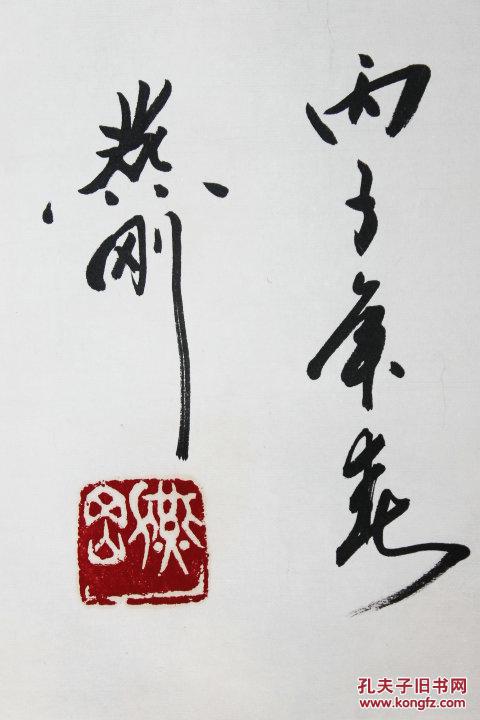 丙子年春
刚
孔夫子旧书网
www.kongfz.com